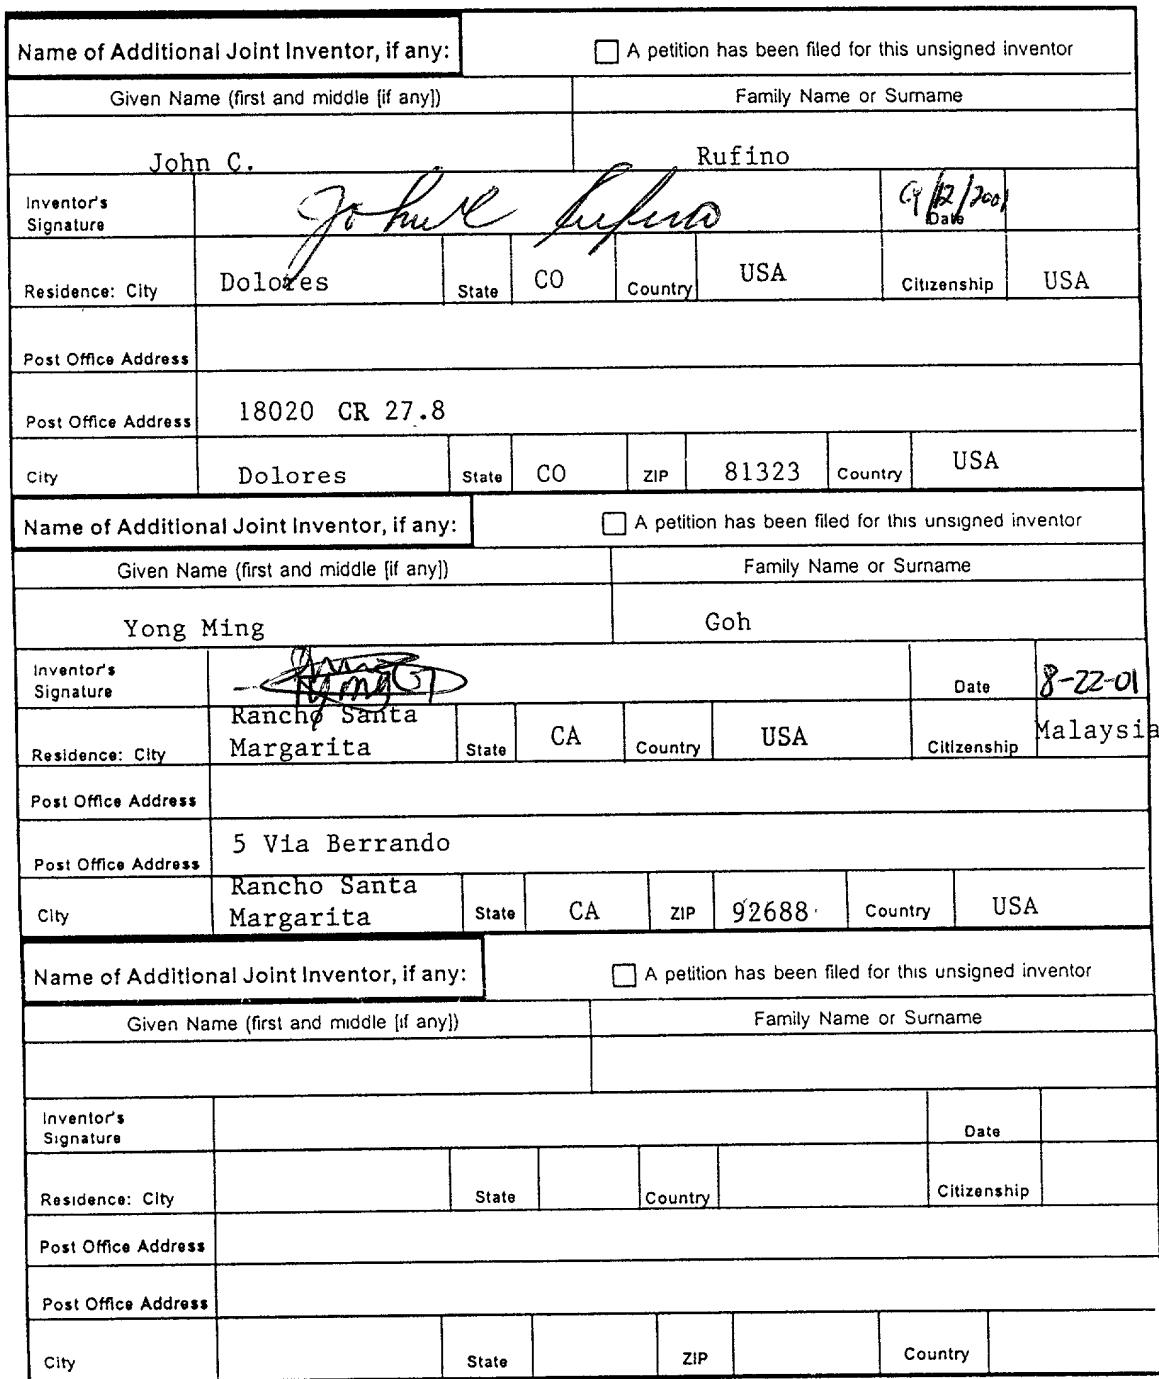 Name of Additional Joint Inventor, if any: A petition has been filed for this unsigned inventor
Given Name (first and middle [if any]) Family Name or Surname
John C. Rufino
Inventor's Signature John C Rufino Date
Residence: City Dolores State CO Country USA Citizenship USA
Post Office Address
Post Office Address 18020 CR 27.8
City Dolores State CO ZIP 81323 Country USA
Name of Additional Joint Inventor, if any: A petition has been filed for this unsigned inventor
Given Name (first and middle [if any]) Family Name or Surname
Yong Ming Goh
Inventor's Signature Date 8-22-01
Residence: City Rancho Santa Margarita State CA Country USA Citizenship Malaysia
Post Office Address
Post Office Address 5 Via Berrando
City Rancho Santa Margarita State CA ZIP 92688 Country USA
Name of Additional Joint Inventor, if any: A petition has been filed for this unsigned inventor
Given Name (first and middle [if any]) Family Name or Surname
Inventor's Signature Date
Residence: City State Country Citizenship
Post Office Address
Post Office Address
City State ZIP Country